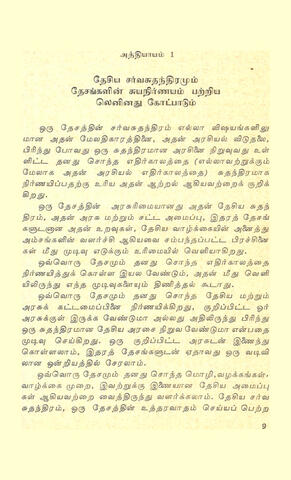 அத்தியாயம் 1
தேசிய சர்வசுதந்திரமும்
தேசங்களின் சுயநிர்ணயம் பற்றிய
லெனினது கோட்பாடும்
ஒரு தேசத்தின் சர்வசுதந்திரம் எல்லா விஷயங்களிலு
மான அதன் மேலதிகாரத்தினை, அதன் அரசியல் விடுதலை,
பிரிந்து போவது ஒரு சுதந்திரமான அரசினை நிறுவுவது உள்
ளிட்ட தனது சொந்த எதிர்காலத்தை (எல்லாவற்றுக்கும்
மேலாக அதன் அரசியல் எதிர்காலத்தை) சுதந்திரமாக
நிர்ணயிப்பதற்கு உரிய அதன் ஆற்றல் ஆகியவற்றைக் குறிக்
கிறது.
ஒரு தேசத்தின் அரசுரிமையானது அதன் தேசிய சுதந்
திரம், அதன் அரசு மற்றும் சட்ட அமைப்பு, இதரத் தேசங்
களுடனான அதன் உறவுகள், தேசிய வாழ்க்கையின் அனைத்து
அம்சங்களின் வளர்ச்சி ஆகியவை சம்பந்தப்பட்ட பிரச்சினை
கள் மீது முடிவு எடுக்கும் உரிமையில் வெளியாகிறது.
ஒவ்வொரு தேசமும் தனது சொந்த எதிர்காலத்தை
நிர்ணயித்துக் கொள்ள இயல வேண்டும், அதன் மீது வெளி
யிலிருந்து எந்த முடிவுகளையும் திணித்தல் கூடாது.
ஒவ்வொரு தேசமும் தனது சொந்த தேசிய மற்றும்
அரசுக் கட்டமைப்பினை நிர்ணயிக்கிறது, குறிப்பிட்ட ஓர்
அரசுக்குள் இருக்க வேண்டுமா அல்லது அதிலிருந்து பிரிந்து
ஒரு சுதந்திரமான தேசிய அரசை நிறுவ வேண்டுமா என்பதை
முடிவு செய்கிறது. ஒரு குறிப்பிட்ட அரசுடன் இணைந்து
கொள்ளலாம், இதரத் தேசங்களுடன் ஏதாவது ஒரு வடிவி
லான ஒன்றியத்தில் சேரலாம்.
ஒவ்வொரு தேசமும் தனது சொந்த மொழி, வழக்கங்கள்,
வாழ்க்கை முறை, இவற்றுக்கு இணையான தேசிய அமைப்பு
கள் ஆகியவற்றை வைத்திருந்து வளர்க்கலாம். தேசிய சர்வ
சுதந்திரம், ஒரு தேசத்தின் உத்தரவாதம் செய்யப் பெற்ற
9